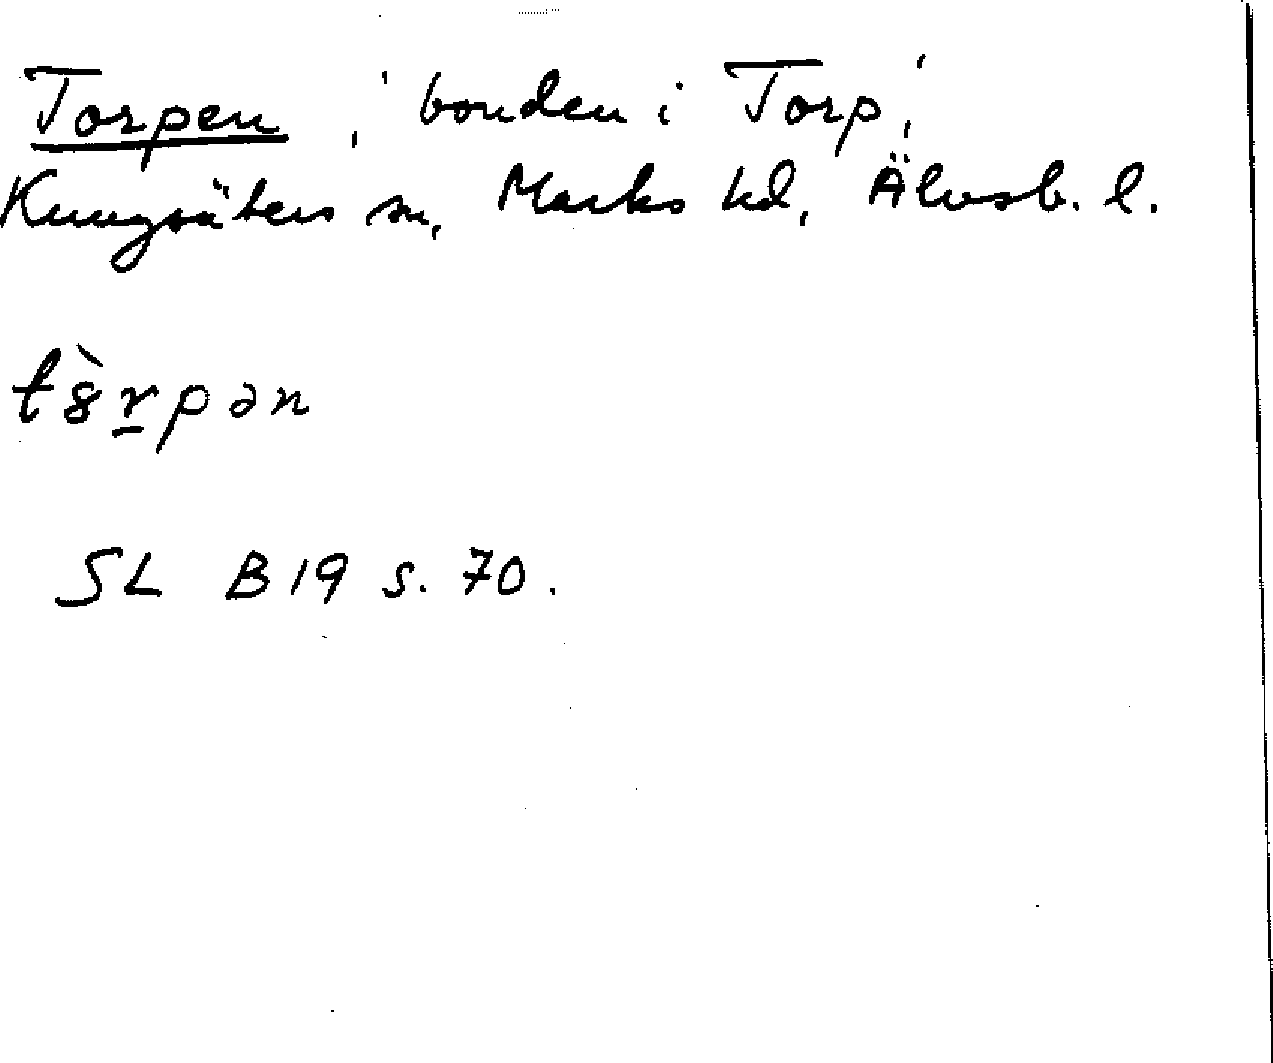 Torpen, 'bonden i Torp',
Kungsäters sn, Marks hd, Älvsb. l.
tȣ̀rpən
SL B19 s. 70.